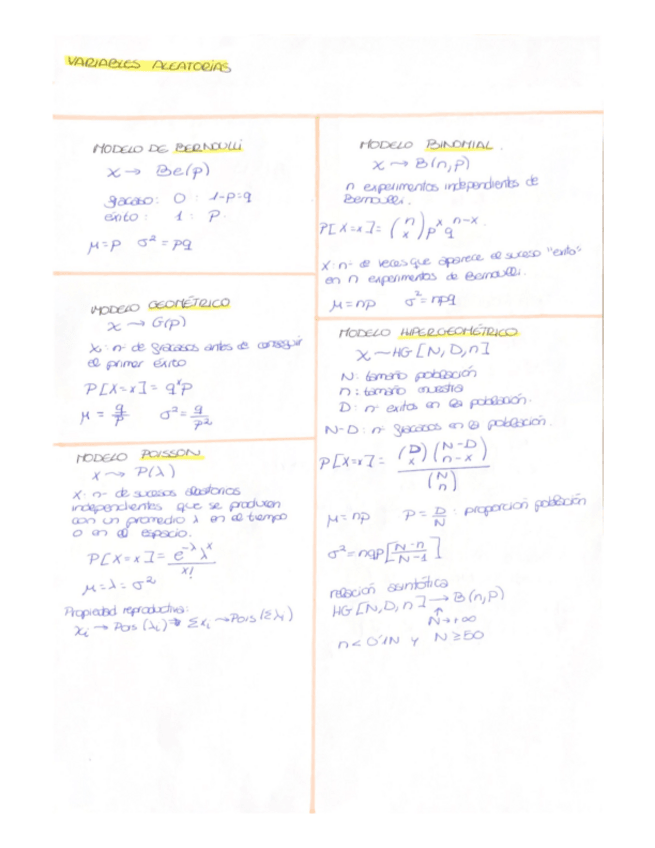 VARIABLES ALEATORIAS
MODELO DE BERNOULLI
X → Be(p)
fracaso: 0 : 1-p=q
éxito: 1 : p.
μ=p σ²=pq
MODELO GEOMÉTRICO
X → G(p)
X: nº de fracasos antes de conseguir
el primer éxito
P[X=x]= qˣp
μ = q/p σ²= q/p²
MODELO POISSON
X → P(λ)
X: nº de sucesos aleatorios
independientes que se producen
con un promedio λ en el tiempo
o en el espacio.
P[X=x]= e^-λ λˣ / x!
μ=λ=σ²
Propiedad reproductiva:
Xi → Pois (λi) → Σxi → Pois (Σλi)
MODELO BINOMIAL.
X → B(n,p)
n experimentos independientes de
Bernoulli.
P[X=x]= (n x) pˣ qⁿ⁻ˣ.
X: nº de veces que aparece el suceso "éxito"
en n experimentos de Bernoulli.
μ=np σ²=npq
MODELO HIPERGEOMÉTRICO
X ~ HG [N, D, n]
N: tamaño población
n: tamaño muestra
D: nº éxitos en la población.
N-D: nº fracasos en la población.
P[X=x]= (D x) (N-D n-x) / (N n)
μ=np p= D/N : proporción población
σ²=nqp[N-n / N-1]
relación asintótica
HG[N, D, n] → B(n,p)
↑
N→+∞
n<0'1N y N≥50